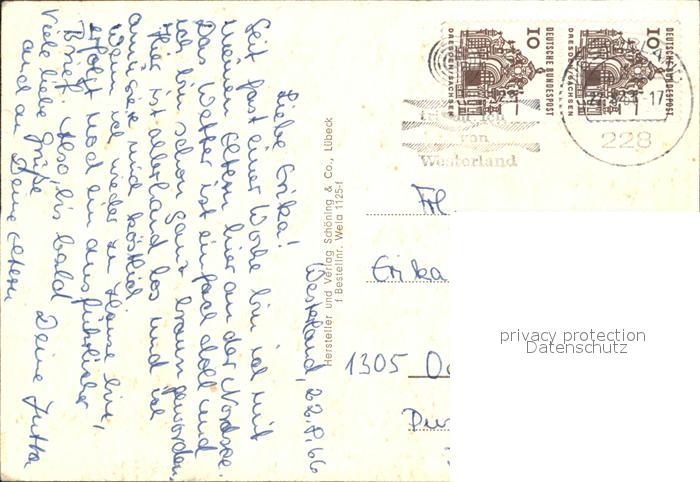 Westerland, 22.8.66
Liebe Erika!
Seit fast einer Woche bin ich mit
meinen Eltern hier an der Nordsee.
Das Wetter ist einfach doll und
ich bin schon ganz braun geworden.
Hier ist allerhand los und ich
amüsiere mich köstlich.
Wenn ich wieder zu Hause bin,
erfolgt noch ein ausführlicher
Brief. Also, bis bald Deine Jutta
Viele liebe Grüße
auch an Deine Eltern
Hersteller und Verlag Schöning & Co., Lübeck
f Bestellnr. Wela 1125-f
10
DEUTSCHE BUNDESPOST
DRESDEN/SACHSEN
10
DEUTSCHE BUNDESPOST
DRESDEN/SACHSEN
von
Westerland
-17
228
Frl
Erika
1305
privacy protection
Datenschutz